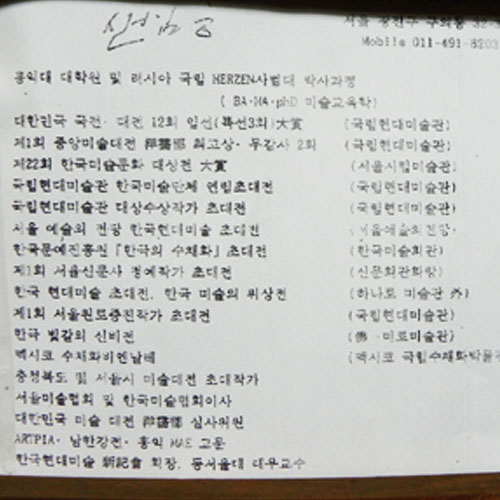 서울 광진구 구의동
Mobile 011-491-8203
홍익대 대학원 및 러시아 국립 HERZEN사범대 박사과정
( BA·MA·phD 미술교육학)
대한민국 국전· 대전 12회 입선(특선3회)大賞 (국립현대미술관)
제1회 중앙미술대전 洋畵部 最고상· 무감사 2회 (국립현대미술관)
제22회 한국미술문화 대상전 大賞 (서울시립미술관)
국립현대미술관 한국미술단체 연립초대전 (국립현대미술관)
국립현대미술관 대상수상작가 초대전 (국립현대미술관)
서울 예술의 전당 한국현대미술 초대전 (서울예술의전당)
한국문예진흥원「한국의 수채화」초대전 (한국미술회관)
제1회 서울신문사 정예작가 초대전 (신문회관화랑)
한국 현대미술 초대전, 한국 미술의 위상전 (하나로 미술관 外)
제1회 서울원로중진작가 초대전 (국립현대미술관)
한국 빛깔의 신비전 (佛 · 미로미술관)
멕시코 수채화비엔날레 (멕시코 국립수채화박물관
충청북도 및 서울시 미술대전 초대작가
서울미술협회 및 한국미술협회이사
대한민국 미술 대전 洋畵部 심사위원
ARTPIA· 남한강전· 홍익 MAE 고문
한국현대미술 新記會 회장, 동서울대 대우교수